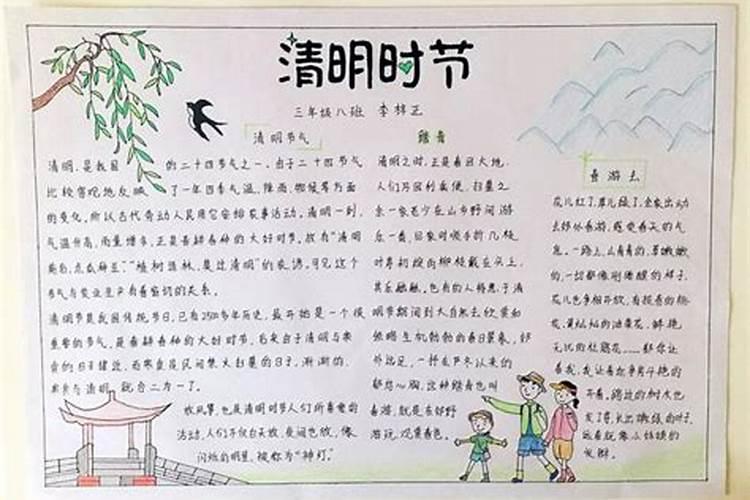 清明时节
三年级八班 李梓正
清明节气
清明,是我国 的二十四节气之一。由于二十四节气
比较客观地反映 了一年四季气温、降雨、物候等方面
的变化,所以古代劳动人民用它安排农事活动。清明一到,
气温升高,雨量增多,正是春耕春种的大好时节。故有“清明
前后,点瓜种豆”、“植树造林,莫过清明”的农谚。可见这个
节气与农业生产有着密切的关系。
清明节是我国传统节日,已有2500多年历史。最开始是一个很
重要的节气,是春耕春种的大好时节,后来由于清明与寒
食的日子接近,而寒食是民间禁火扫墓的日子,渐渐的,
寒食与清明 就合二为一了。
放风筝,也是清明时节人们所喜爱的
活动,人们不仅白天放,夜间也放,像
闪烁的明星,被称为“神灯”。
踏青
清明之时,正是春回大地,
人们乃因利乘便,扫墓之
余一家老少在山乡野间游
乐一番,回家时顺手折几枝
叶芽初绽的柳枝戴在头上,
其乐融融。也有的人特意于清
明节期间到大自然去欣赏和
领略生机勃勃的春日景象,郊
外远足,一抒在严冬以来的
郁结心胸,这种踏青也叫
春游,就是在郊野
游玩,观赏春色。
春游去
花儿红了,草儿绿了,全家出动
去郊外春游,感受春天的气
息。一路上,山青青的,草嫩嫩
的,一切都像刚睡醒的样子,
花儿也争相开放,有粉红的桃
花,黄灿灿的油菜花,鲜艳
无比的杜鹃花……